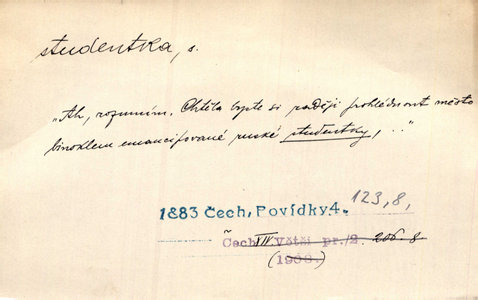 studentka, s.
„Ah, rozumím. Chtěla byste si raději prohlédnout město
binoklem emancipované ruské studentky, ..“
1883 Čech, Povídky 4. 123,8,
Čech IV. Větší pr./2. 206.8
(1908.)